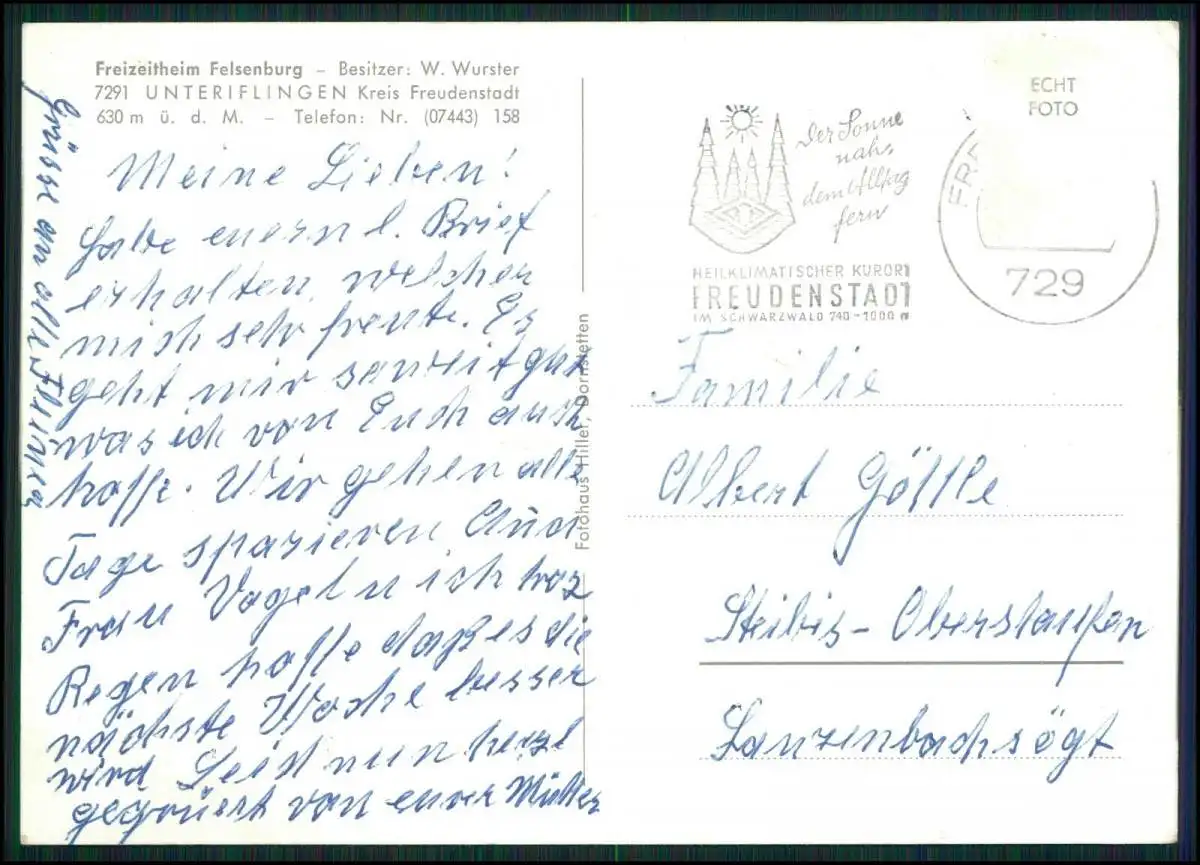 Freizeitheim Felsenburg – Besitzer: W. Wurster
7291 UNTERIFLINGEN Kreis Freudenstadt
630 m ü. d. M. – Telefon: Nr. (07443) 158
Meine Lieben!
Habe euern l. Brief
erhalten, welcher
mich sehr freute. Es
geht mir soweit gut
was ich von Euch auch
hoffe. Wir gehen alle
Tage spazieren Auch
Frau Vogel u ich troz
Regen hoffe daß es die
nächste Woche besser
wird Seid nun herzl
gegrüsst von eurer Mutter
Grüsse an alle
Fotohaus Hiller, Dornstetten
ECHT
FOTO
Der Sonne
nah,
dem Alltag
fern
HEILKLIMATISCHER KURORT
FREUDENSTADT
IM SCHWARZWALD 740–1000 m
FRE
729
Familie
Albert Göttle
Steibis – Oberstaufen
Lanzenbachsögt